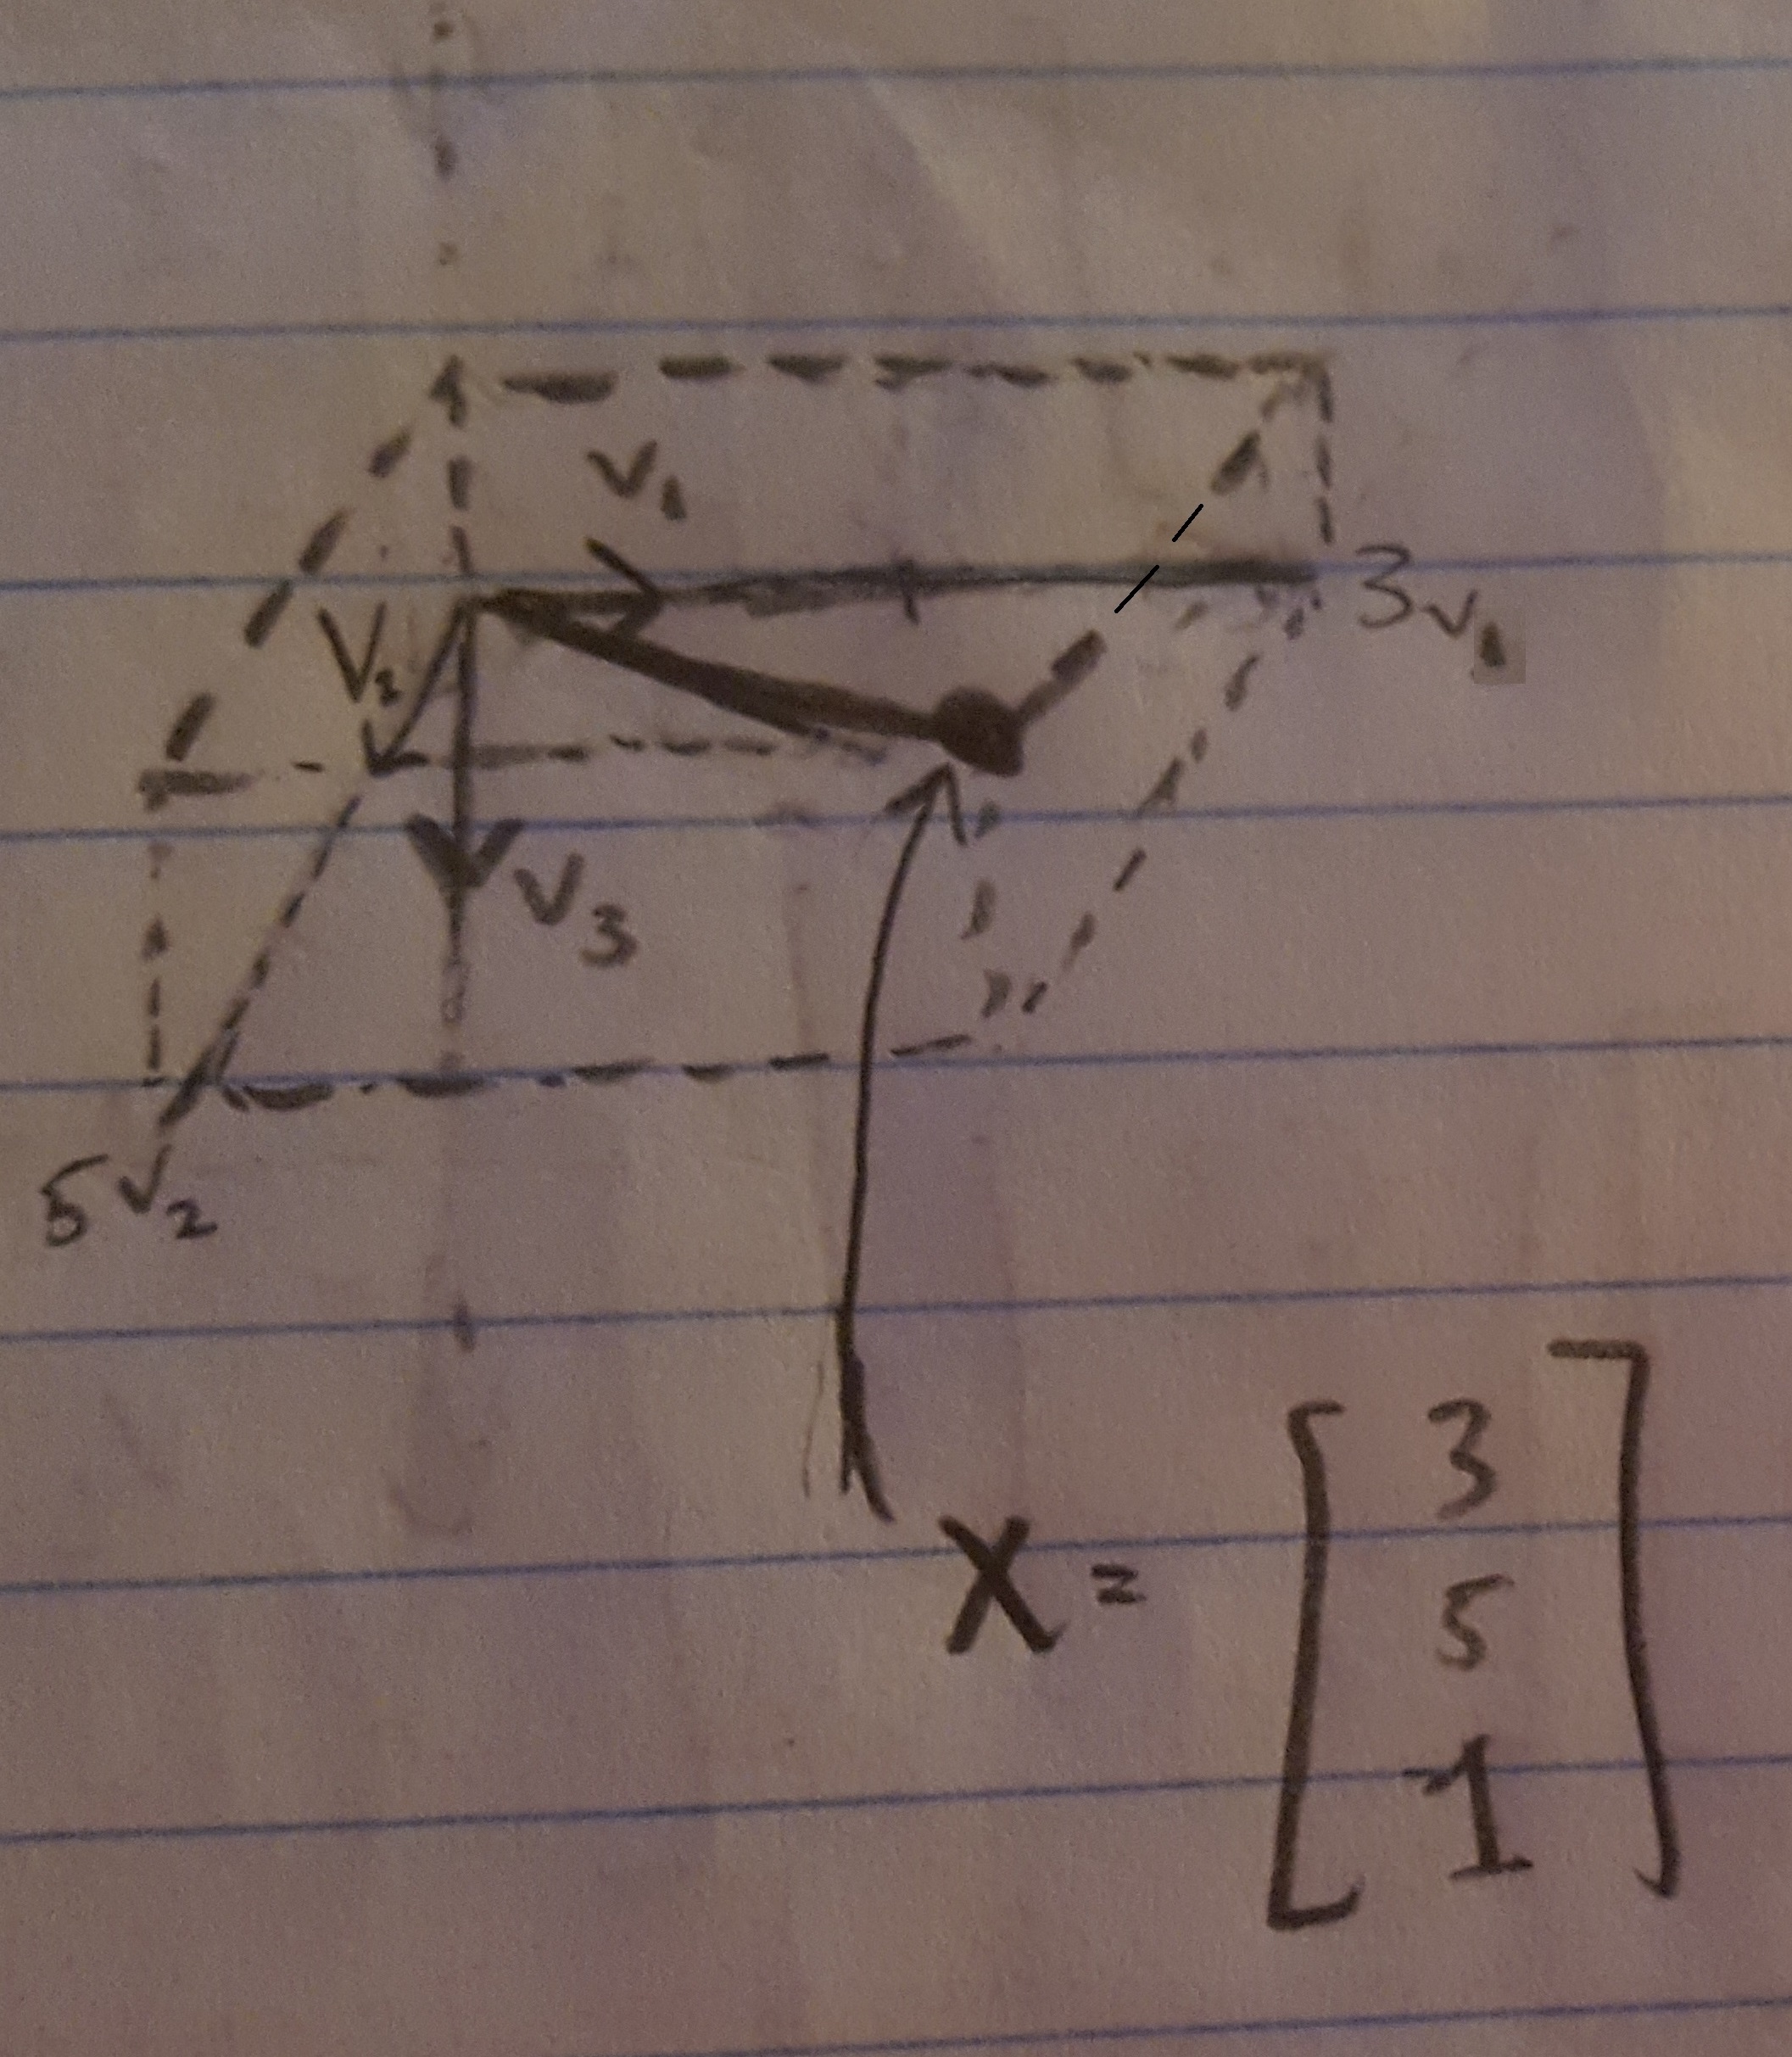 V₁
3v₁
V₂
V₃
5V₂
X = [ 3
5
-1 ]